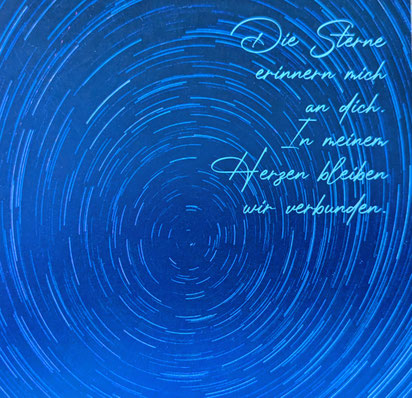 Die Sterne
erinnern mich
an dich.
In meinem
Herzen bleiben
wir verbunden.